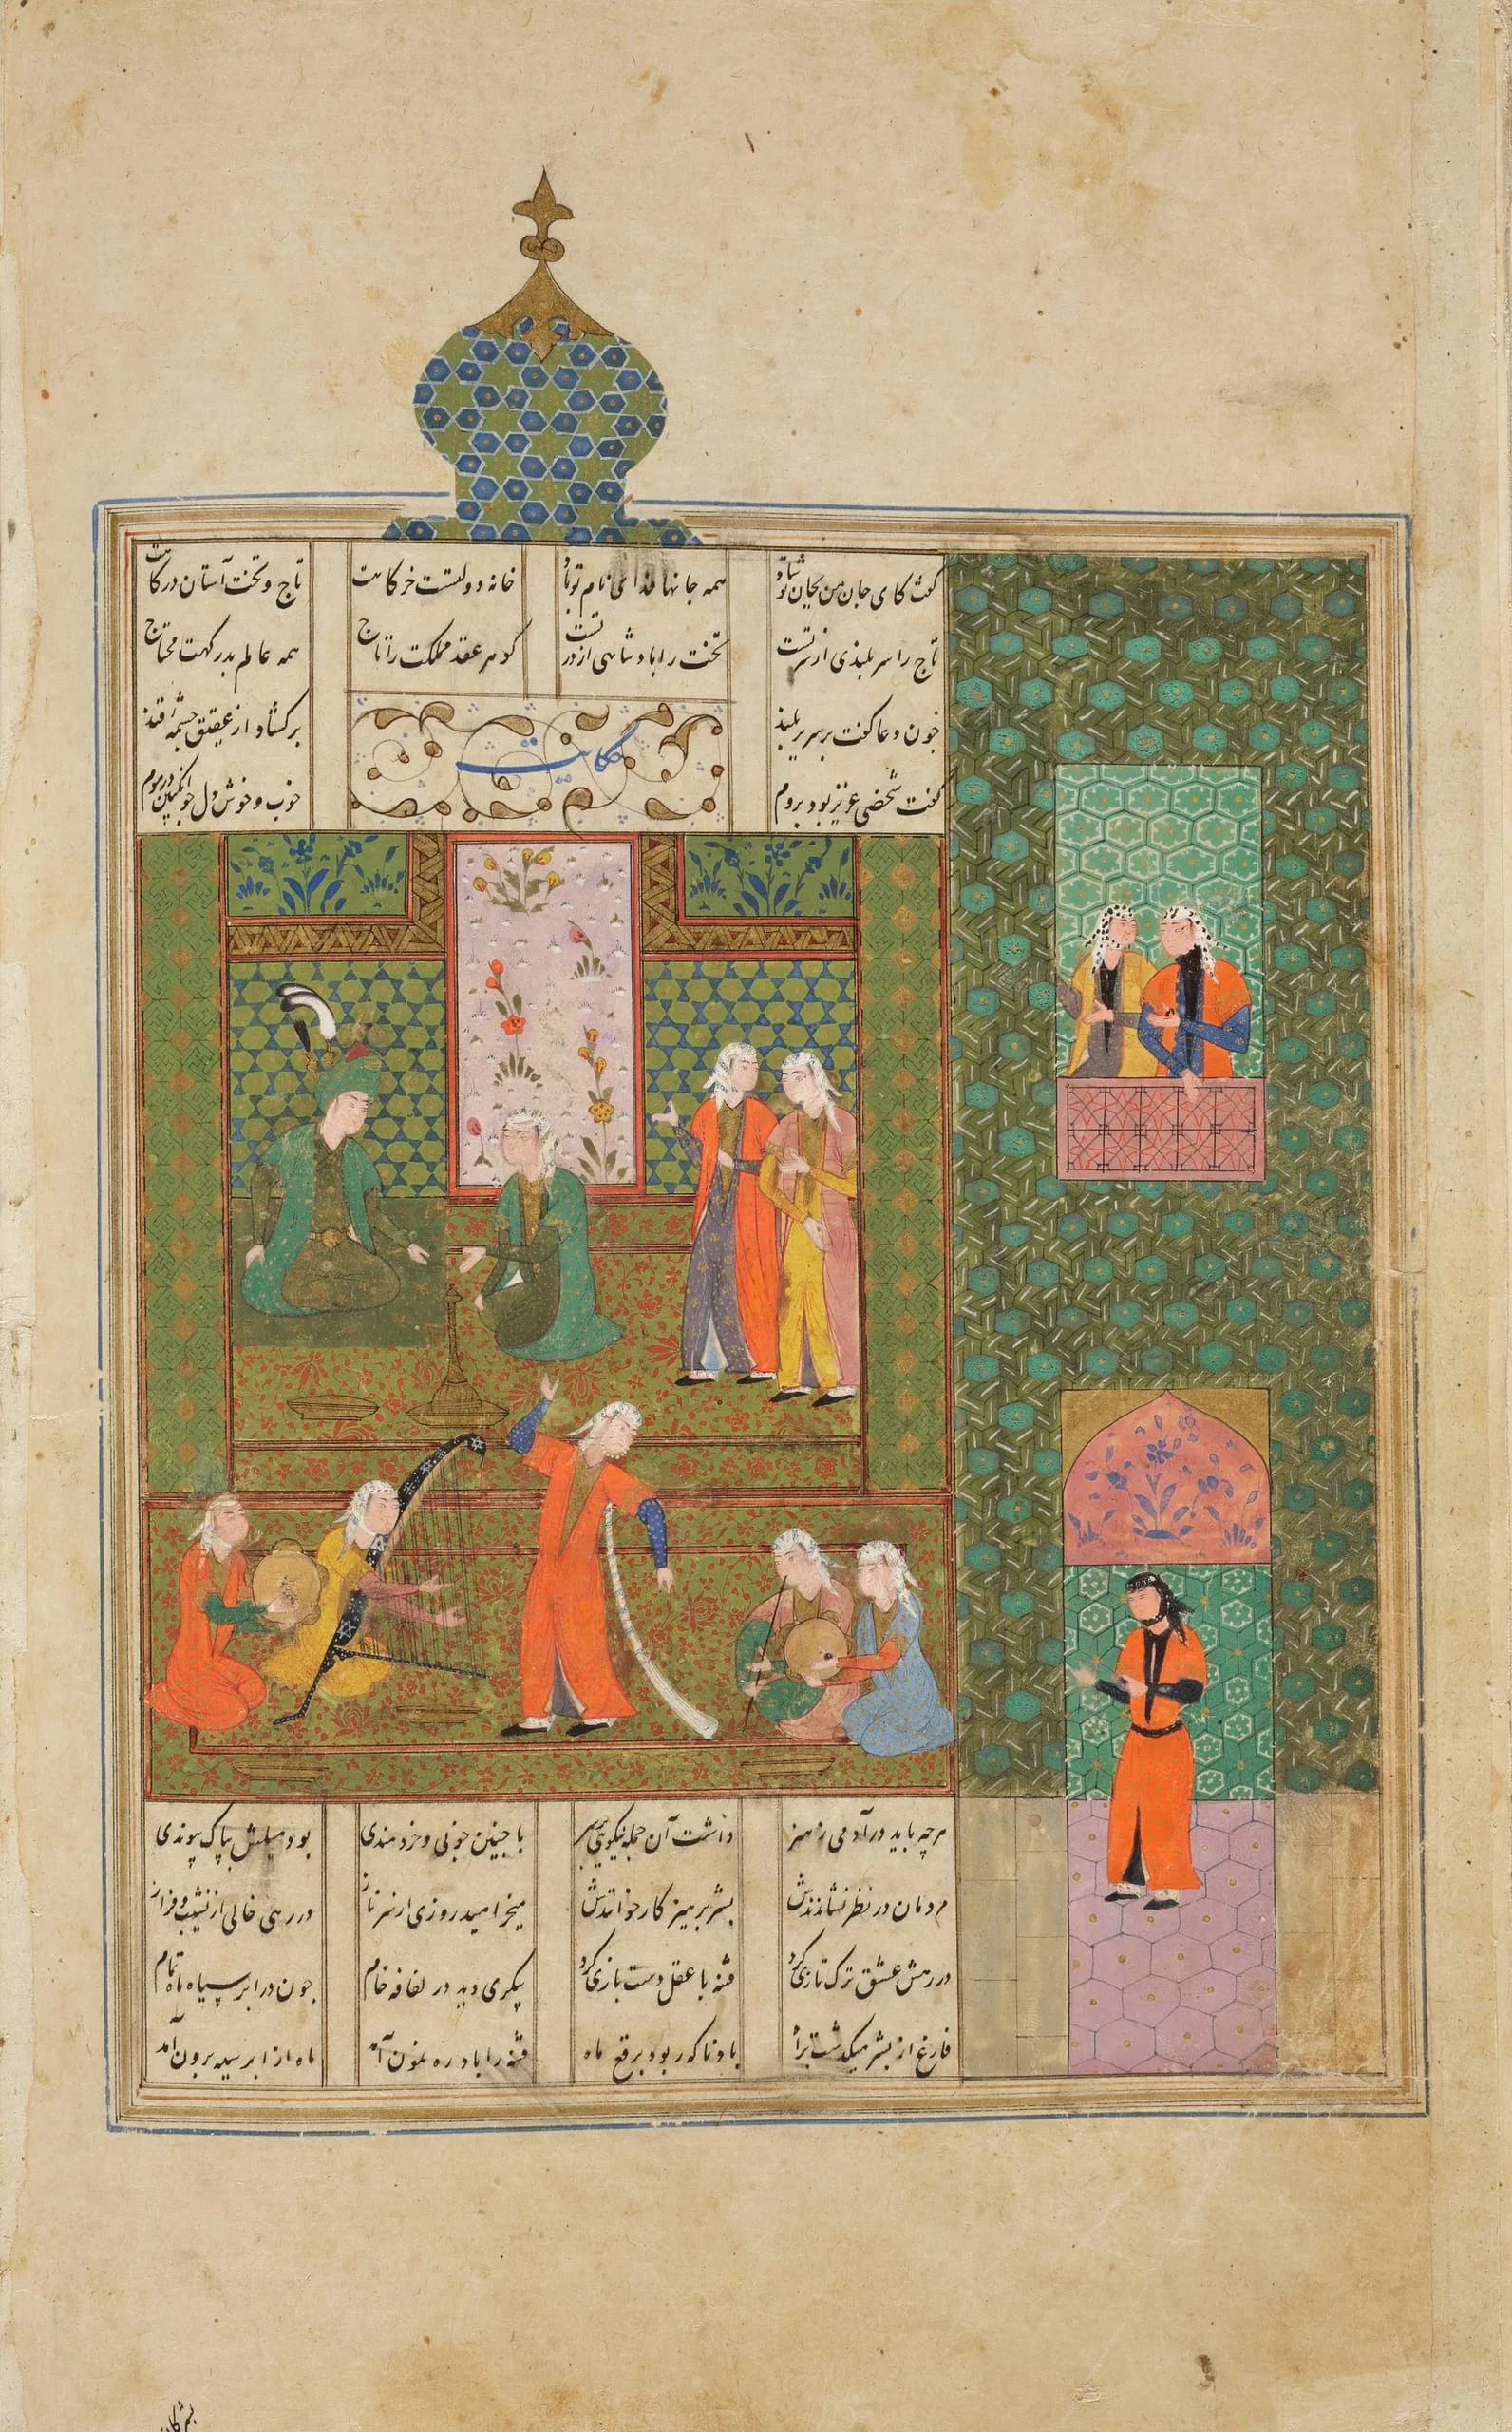 گفت کای جان من بجان تو شاد همه جانها فدای نام تو باد
خانه دولتست خرگاهت تاج و تخت آستان درگاهت
تاج را سربلندی از سر تست تخت را پادشاهی از در تست
گوهر عقد مملکت را تاج همه عالم بدرگهت محتاج
چون دعا گفت بر سریر بلند
برگشاد از عقیق چشمه قند
حکایت
گفت شخصی عزیز بود بروم
خوب و خوش دل چو انگبین در موم
هرچه باید در آدمی ز هنر داشت آن جمله نیکویی بر سر
با چنین خوبی و خردمندی بود میلش بپاک پیوندی
مردمان در نظر نشاندندش بشر پرهیزکار خواندندش
میخرامید روزی از سر ناز در رهی خالی از نشیب و فراز
در رهش عشق ترک تازی کرد فتنه با عقل دست بازی کرد
پیکری دید در لفافه خام چون در ابر سیاه ماه تمام
فارغ از بشر میگذشت براه باد ناگه ربود برقع ماه
فتنه را باد رهنمون آمد ماه از ابر سیه برون آمد